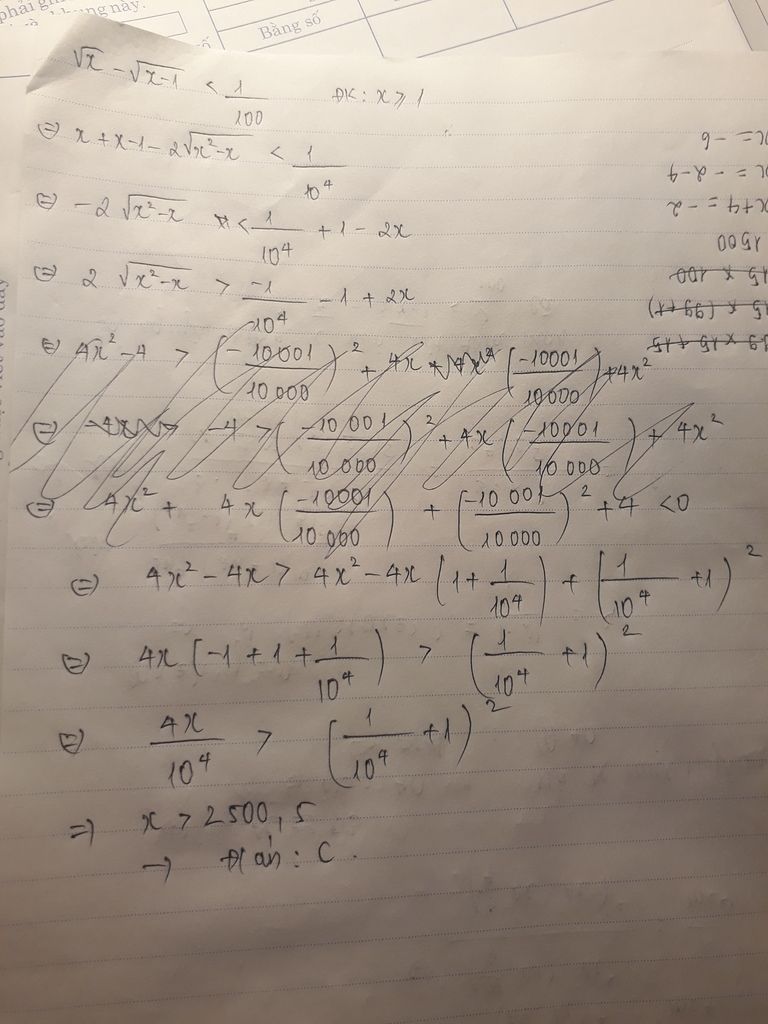 phải g
này.
Bảng số
số
√x - √x-1 < 1/100 ĐK: x ≥ 1
⇔ x + x-1 - 2√x²-x < 1/10⁴
⇔ -2 √x²-x < 1/10⁴ + 1 - 2x
⇔ 2 √x²-x > -1/10⁴ - 1 + 2x
⇔ 4x² - 4 > (-10001/10000)² + 4x (-10001/10000) + 4x²
⇔ -4 > (-10001/10000)² + 4x (-10001/10000) + 4x²
⇔ 4x² + 4x (-10001/10000) + (-10001/10000)² + 4 < 0
⇔ 4x² - 4x > 4x² - 4x (1 + 1/10⁴) + (1/10⁴ + 1)²
⇔ 4x (-1 + 1 + 1/10⁴) > (1/10⁴ + 1)²
⇔ 4x/10⁴ > (1/10⁴ + 1)²
⇒ x > 2500,5
→ Đ án: C.
99 x 15 + 15
15 x (99+1)
15 x 100
1500
x+4 = -2
x = -2-4
x = -6